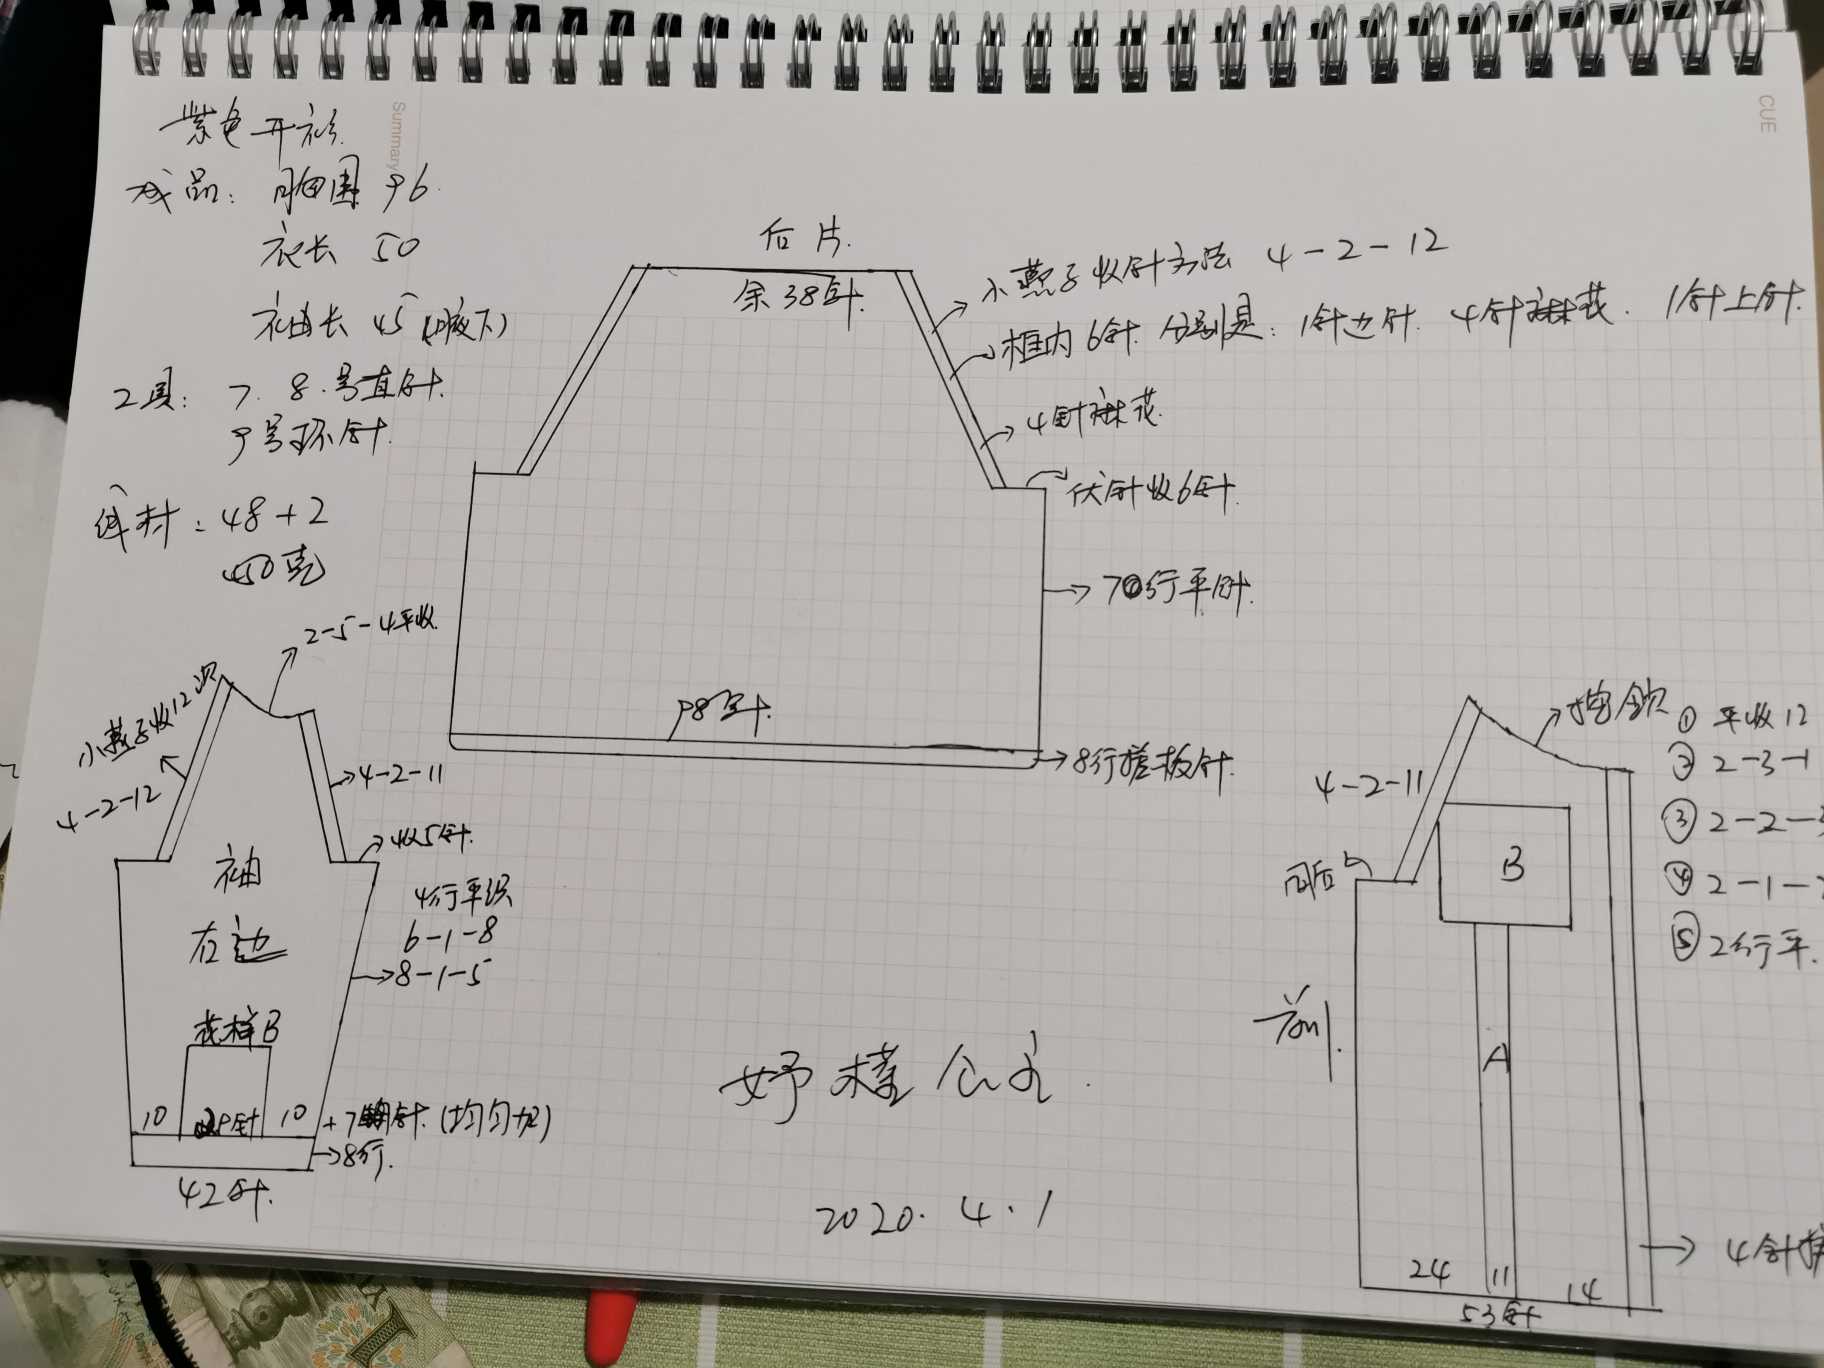 Summary
CUE
紫色开衫
成品: 胸围 96
衣长 50
袖长 45 (腋下)
工具: 7. 8. 号直针.
9号环针.
线材: 48+2
450克
后片.
余38针.
小燕子收针方法 4-2-12
框内6针. 分别是: 1针边针. 4针麻花. 1针上针.
4针麻花.
伏针收6针.
70行平针.
98针.
8行搓板针.
2-5-4平收.
小燕子收12次
4-2-12
4-2-11
收5针.
4行平织
6-1-8
8-1-5
袖
右边
花样B
10
针
10
(均匀加)
8行.
42针.
妤
公主.
2020. 4. 1
领
① 平收12
② 2-3-1
③ 2-2-
④ 2-1-
⑤ 2行平.
4-2-11
同后
B
前片.
A
4针
24
11
14
53针